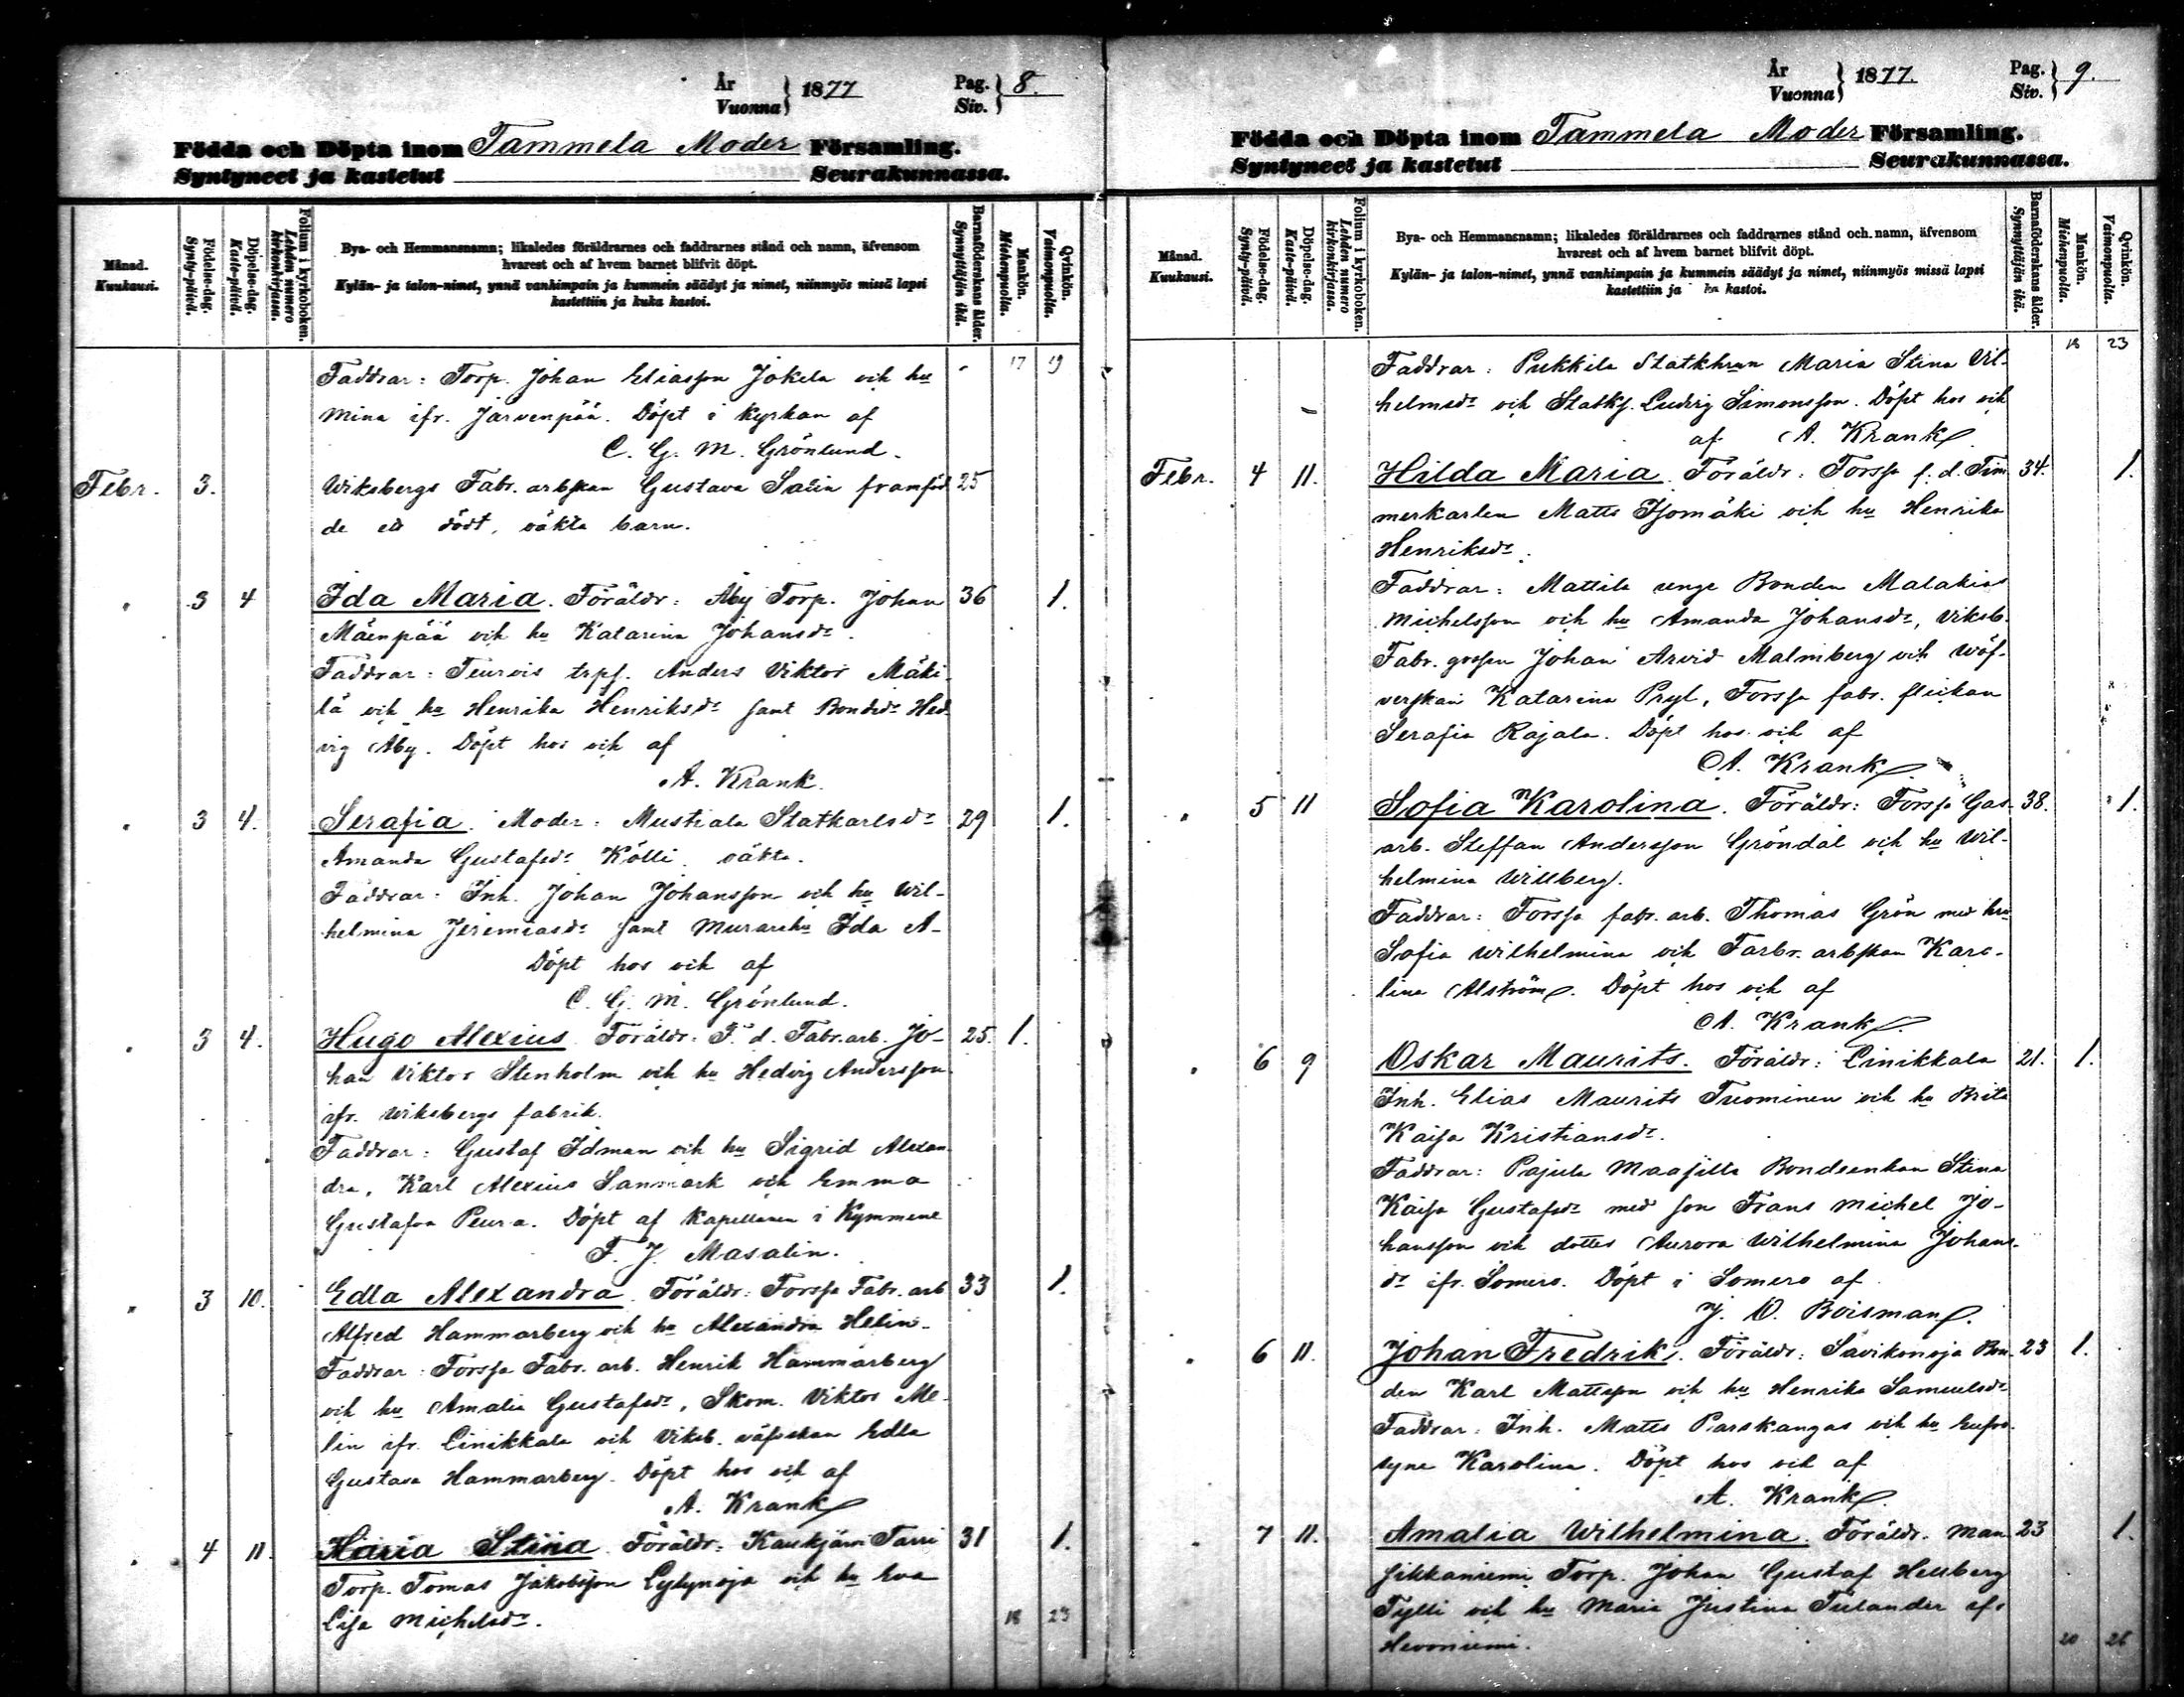 År
Vuonna } 1877 Pag.
Siv. } 8.
Födda och Döpta inom Tammela Moder Församling.
Syntyneet ja kastetut Seurakunnassa.
Månad.
Kuukausi.
Födelse-dag.
Synty-päivä.
Döpelse-dag.
Kaste-päivä.
Folium i kyrkoboken.
Lehden numero
kirkonkirjassa.
Bya- och Hemmansnamn; likaledes föräldrarnes och faddrarnes stånd och namn, äfvensom
hvarest och af hvem barnet blifvit döpt.
Kylän- ja talon-nimet, ynnä vanhimpain ja kummein säädyt ja nimet, niinmyös missä lapsi
kastettiin ja kuka kastoi.
Barnaföderskans ålder.
Synnyttäjän ikä.
Mankön.
Miehenpuolta.
Qvinkön.
Vaimonpuolta.
Faddrar: Torp. Johan Eliasson Jokela och hu 17 19
Mina ifr. Järvenpää. Döpt i kyrkan af
C. G. M. Grönlund.
Febr. 3. Wiksbergs Fabr. arbskan Gustava Salin framföd 25
de ett dödt, oäkta barn.
" 3 4 Ida Maria. Föräldr: Åby Torp. Johan 36 1.
Mäenpää och hu Katarina Johansdr.
Faddrar: Teuro's trpf. Anders Viktor Mäki-
lä och hu Henrika Henriksdr samt Bondedr Hed-
vig Åby. Döpt hos och af
A. Krank.
" 3 4. Serafia. Moder: Mustiala Statkarlsdr 29 1.
Amanda Gustafsdr Kölli oäkta.
Faddrar: Inh. Johan Johansson och hu Wil-
helmina Jeremiasdr samt Murarehu Ida A-
Döpt hos och af
C. G. M. Grönlund.
" 3 4. Hugo Alexius Föräldr: F. d. Fabr. arb. Jo- 25. 1.
han Viktor Stenholm och hu Hedvig Andersson
ifr. Wiksbergs fabrik.
Faddrar: Gustaf Idman och hu Sigrid Alexan-
dra, Karl Alexius Sanmark och Emma
Gustafva Peura. Döpt af Kapellanen i Kymmene
F. J. Masalin.
" 3 10. Edla Alexandra. Föräldr: Forssa Fabr. arb 33 1.
Alfred Hammarberg och hu Alexandra Helin.
Faddrar: Forssa Fabr. arb. Henrik Hammarberg
och hu Amalia Gustafsdr, Skom. Viktor Me-
lin ifr. Linikkala och Viksb. väfskan Edla
Gustava Hammarberg. Döpt hos och af
A. Krank
" 4 11. Maria Stina Föräldr: Kaukjärvi Tarri 31 1.
Torp. Tomas Jakobsson Lylynoja och hu Eva
Lisa Michelsdr. 18 23
År
Vuonna } 1877. Pag.
Siv. } 9.
Födda och Döpta inom Tammela Moder Församling.
Syntyneet ja kastetut Seurakunnassa.
Månad.
Kuukausi.
Födelse-dag.
Synty-päivä.
Döpelse-dag.
Kaste-päivä.
Folium i kyrkoboken.
Lehden numero
kirkonkirjassa.
Bya- och Hemmansnamn; likaledes föräldrarnes och faddrarnes stånd och namn, äfvensom
hvarest och af hvem barnet blifvit döpt.
Kylän- ja talon-nimet, ynnä vanhimpain ja kummein säädyt ja nimet, niinmyös missä lapsi
kastettiin ja ka kastoi.
Barnaföderskans ålder.
Synnyttäjän ikä.
Mankön.
Miehenpuolta.
Qvinkön.
Vaimonpuolta.
Faddrar: Pukkila Statkhrun Maria Stina Vil- 18 23
helmsdr och Statkf. Ludvig Simonsson. Döpt hos och
af A. Krank
Febr. 4 11. Hilda Maria. Föräldr: Forssa f. d. Tim- 34. 1.
merkarlen Matts Isomäki och hu Henrika
Henriksdr.
Faddrar: Mattila unge Bonden Malakias
Michelsson och hu Amanda Johansdr, Viksb.
Fabr. gossen Johan Arvid Malmberg och wäf-
verskan Katarina Pryl, Forssa fabr. flickan
Serafia Rajala. Döpt hos och af
A. Krank
" 5 11 Sofia Karolina. Föräldr: Forssa Gas- 38. 1.
arb. Steffan Andersson Gröndal och hu Wil-
helmina Willberg.
Faddrar: Forssa fabr. arb. Thomas Grön med hu
Sofia Wilhelmina och Farbr. arbskan Karo-
lina Alström. Döpt hos och af
A. Krank
" 6 9 Oskar Maurits. Föräldr: Linikkala 21. 1.
Inh. Elias Maurits Tuominen och hu Brita
Kaisa Kristiansdr.
Faddrar: Pajula Maajilla Bondeenkan Stina
Kaisa Gustafsdr med son Frans Michel Jo-
hansson och dotter Aurora Wilhelmina Johans-
dr ifr. Somero. Döpt i Somero af
J. O. Boisman.
" 6 11. Johan Fredrik. Föräldr: Savikonoja Bon- 23 1.
den Karl Mattsson och hu Henrika Samuelsdr
Faddrar: Inh. Matts Parskangas och hu Eufro-
syne Karolina. Döpt hos och af
A. Krank.
" 7 11. Amalia Wilhelmina. Föräldr. Man- 23 1.
sikkaniemi Torp. Johan Gustaf Heuberg
Tylli och hu Maria Justina Tulander ifr
Hevoniemi. 20 26